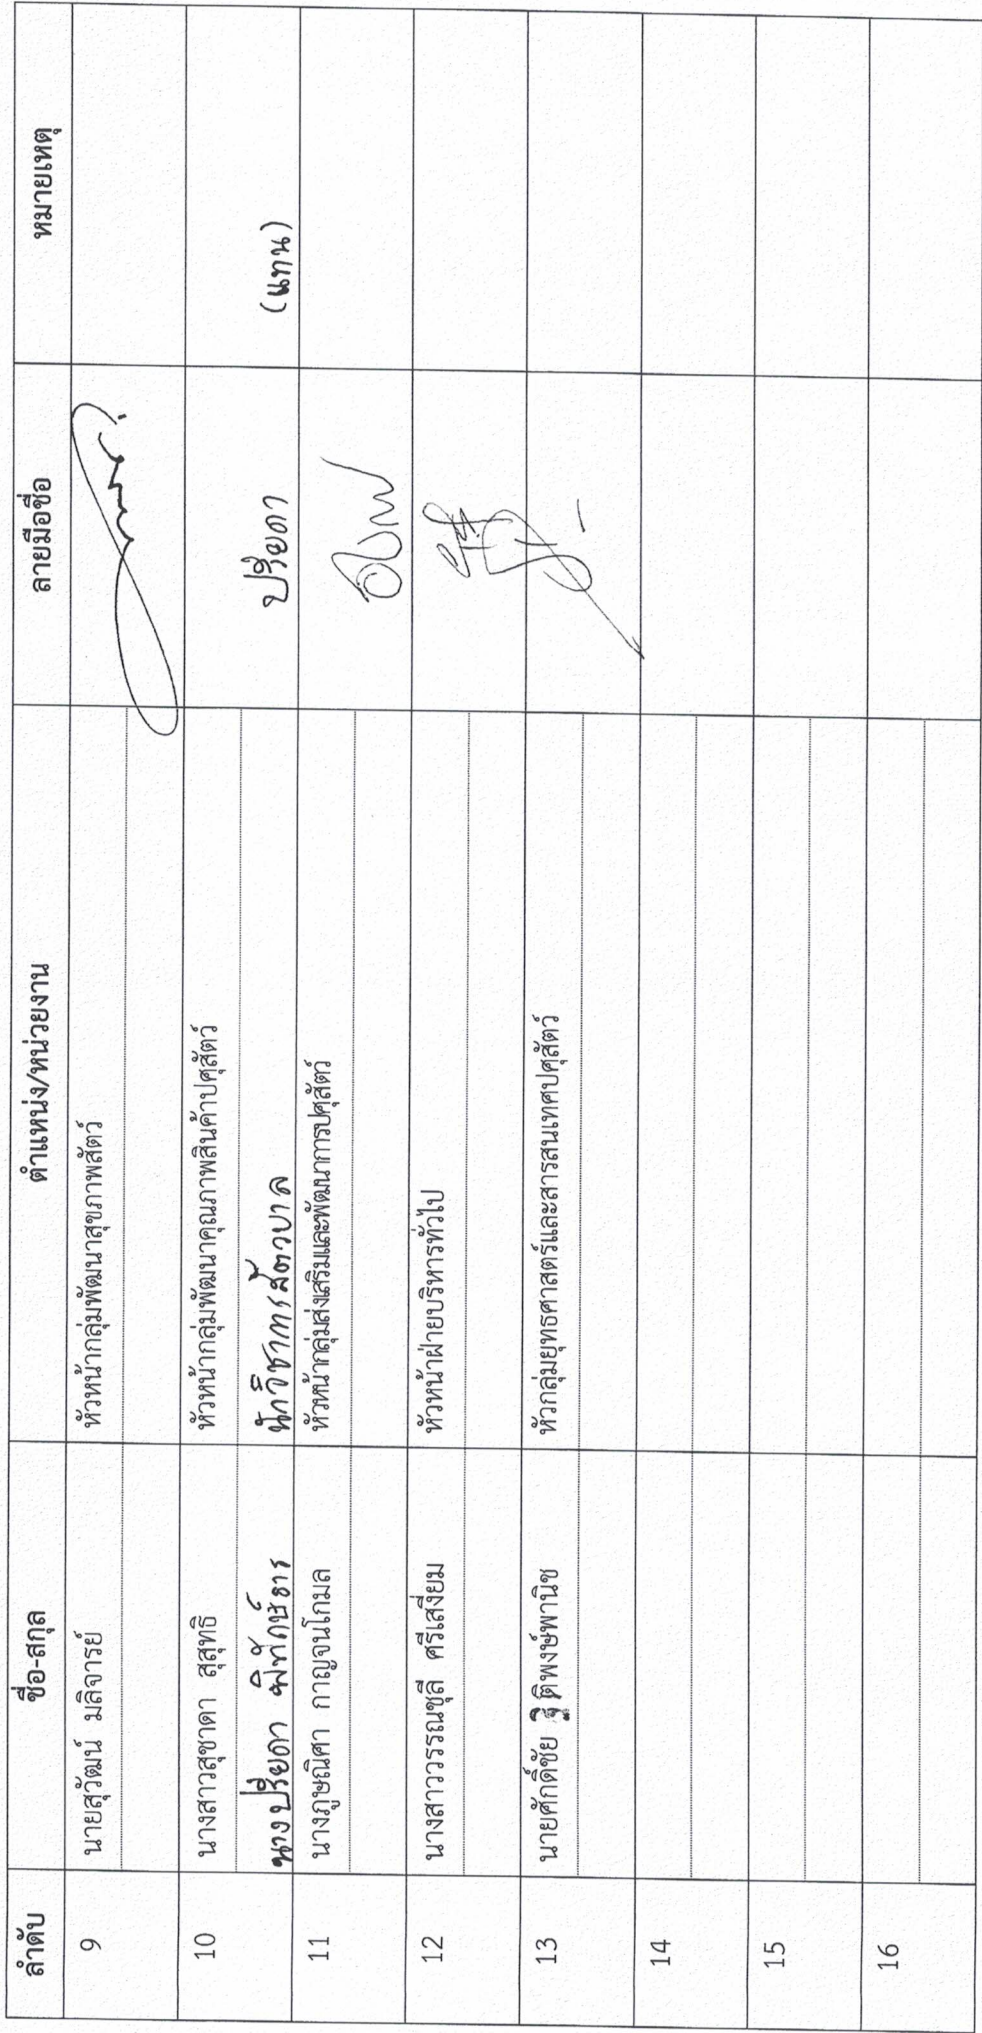 ลำดับ ชื่อ-สกุล ตำแหน่ง/หน่วยงาน ลายมือชื่อ หมายเหตุ
9 นายสุวัฒน์ มลิจารย์ หัวหน้ากลุ่มพัฒนาสุขภาพสัตว์
10 นางสาวสุชาดา สุสุทธิ หัวหน้ากลุ่มพัฒนาคุณภาพสินค้าปศุสัตว์
นางปรียดา พิทักษ์ธาร นักวิชาการสัตวบาล ปรียดา (แทน)
11 นางภูษณิศา กาญจนโกมล หัวหน้ากลุ่มส่งเสริมและพัฒนาการปศุสัตว์
12 นางสาววรรณชุลี ศรีเสงี่ยม หัวหน้าฝ่ายบริหารทั่วไป
13 นายศักดิ์ชัย ฐิติพงษ์พานิช หัวกลุ่มยุทธศาสตร์และสารสนเทศปศุสัตว์
14
15
16